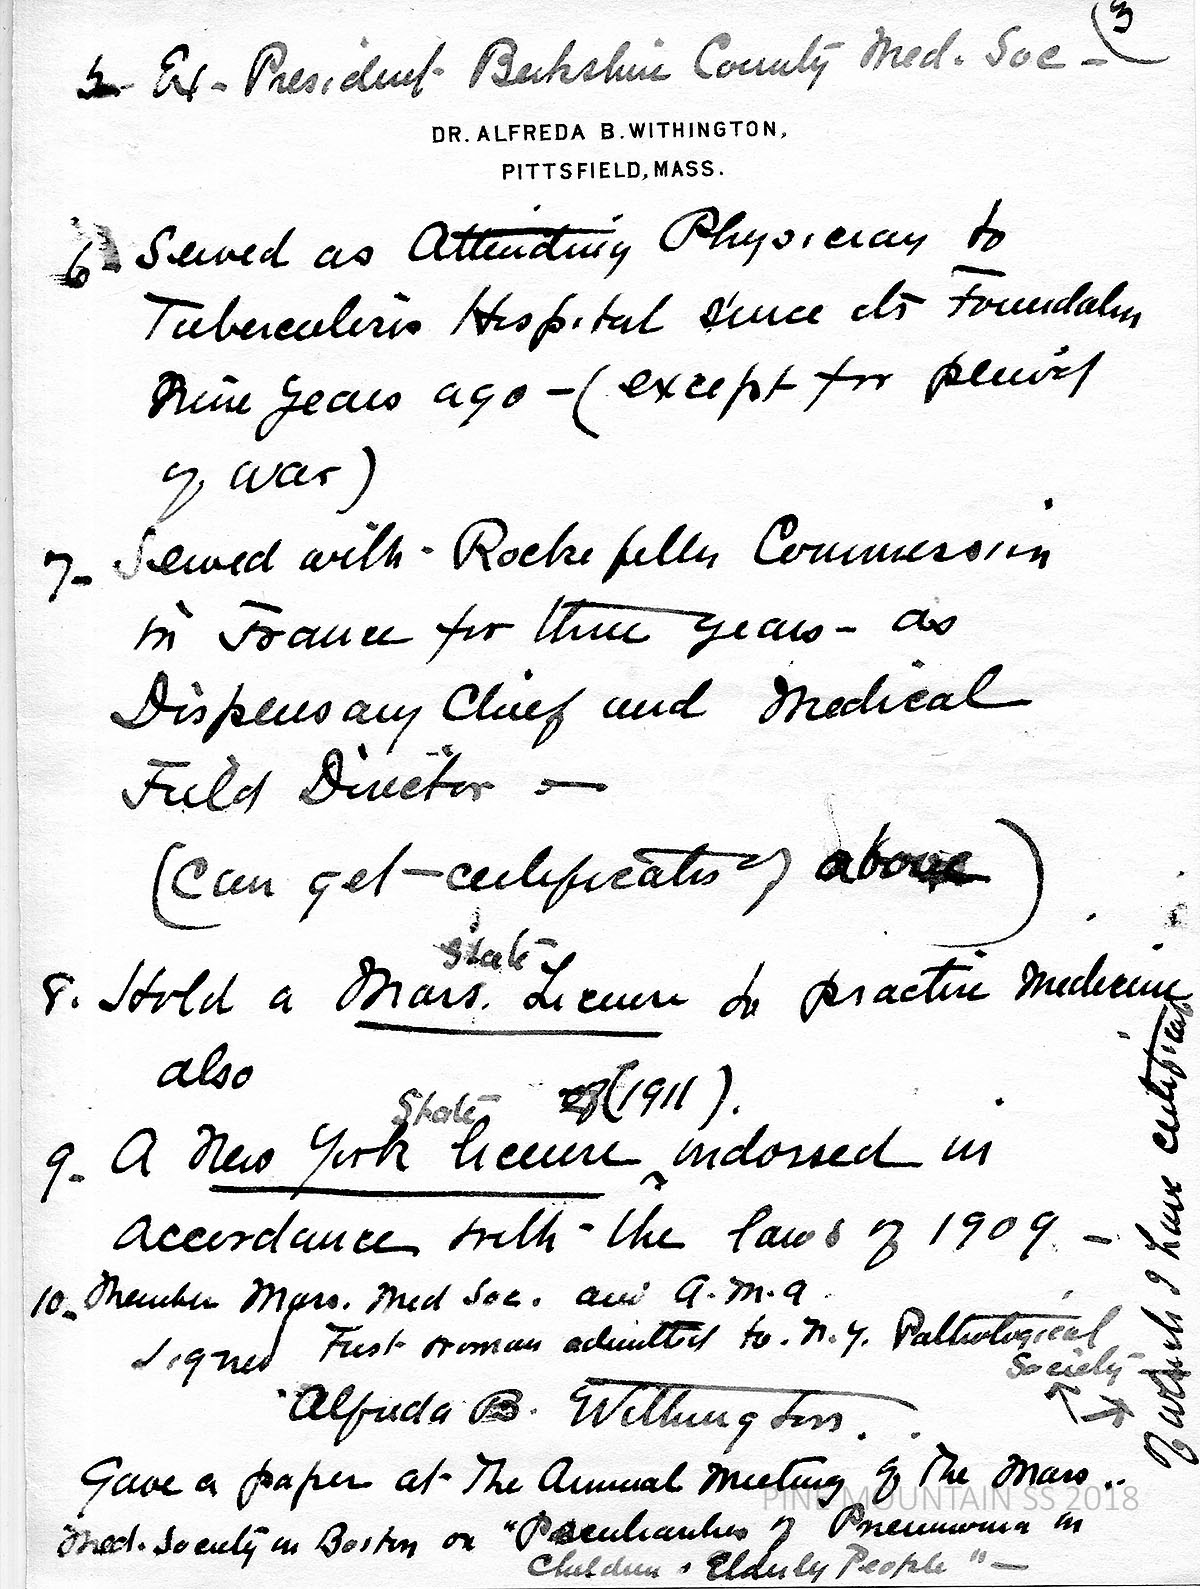 (3
5- Ex-President Berkshire County Med. Soc -
DR. ALFREDA B. WITHINGTON,
PITTSFIELD, MASS.
6- Served as Attending Physician to
Tuberculosis Hospital since its Foundation
Nine years ago - (except for period
of war)
7- Served with Rockefeller Commission
in France for three years - as
Dispensary Chief and Medical
Field Director -
(Can get certificates of above)
State
8. Hold a Mass. License to practice Medicine
also
State (1911).
9- A New York license indorsed in
accordance with the laws of 1909 -
10- Member Mass. Med Soc. and A.M.A
First woman admitted to N.Y. Pathological
Society
signed
Alfreda B. Withington.
Gave a paper at the Annual Meeting of the Mass.
Med. Society in Boston on "Peculiarities of Pneumonia in
Children & Elderly People" -
I have certificate
PINE MOUNTAIN SS 2018